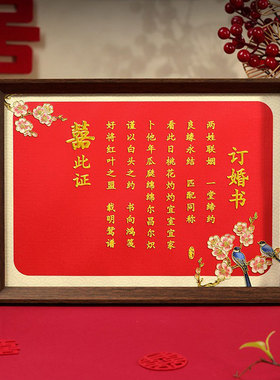 订婚书
两姓联姻 一堂缔约
良缘永结 匹配同称
看此日桃花灼灼宜室宜家
卜他年瓜瓞绵绵尔昌尔炽
谨以白头之约 书向鸿笺
好将红叶之盟 载明鸳谱
此证
囍